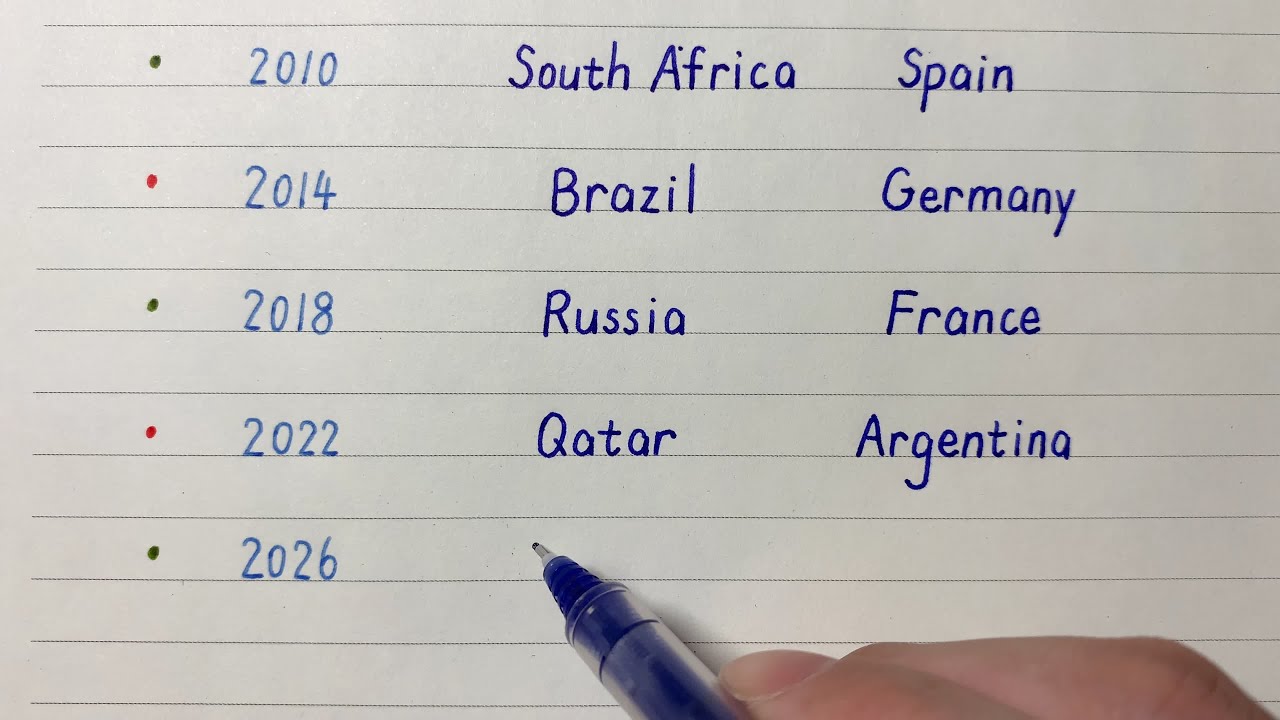 2010 South Africa Spain
2014 Brazil Germany
2018 Russia France
2022 Qatar Argentina
2026